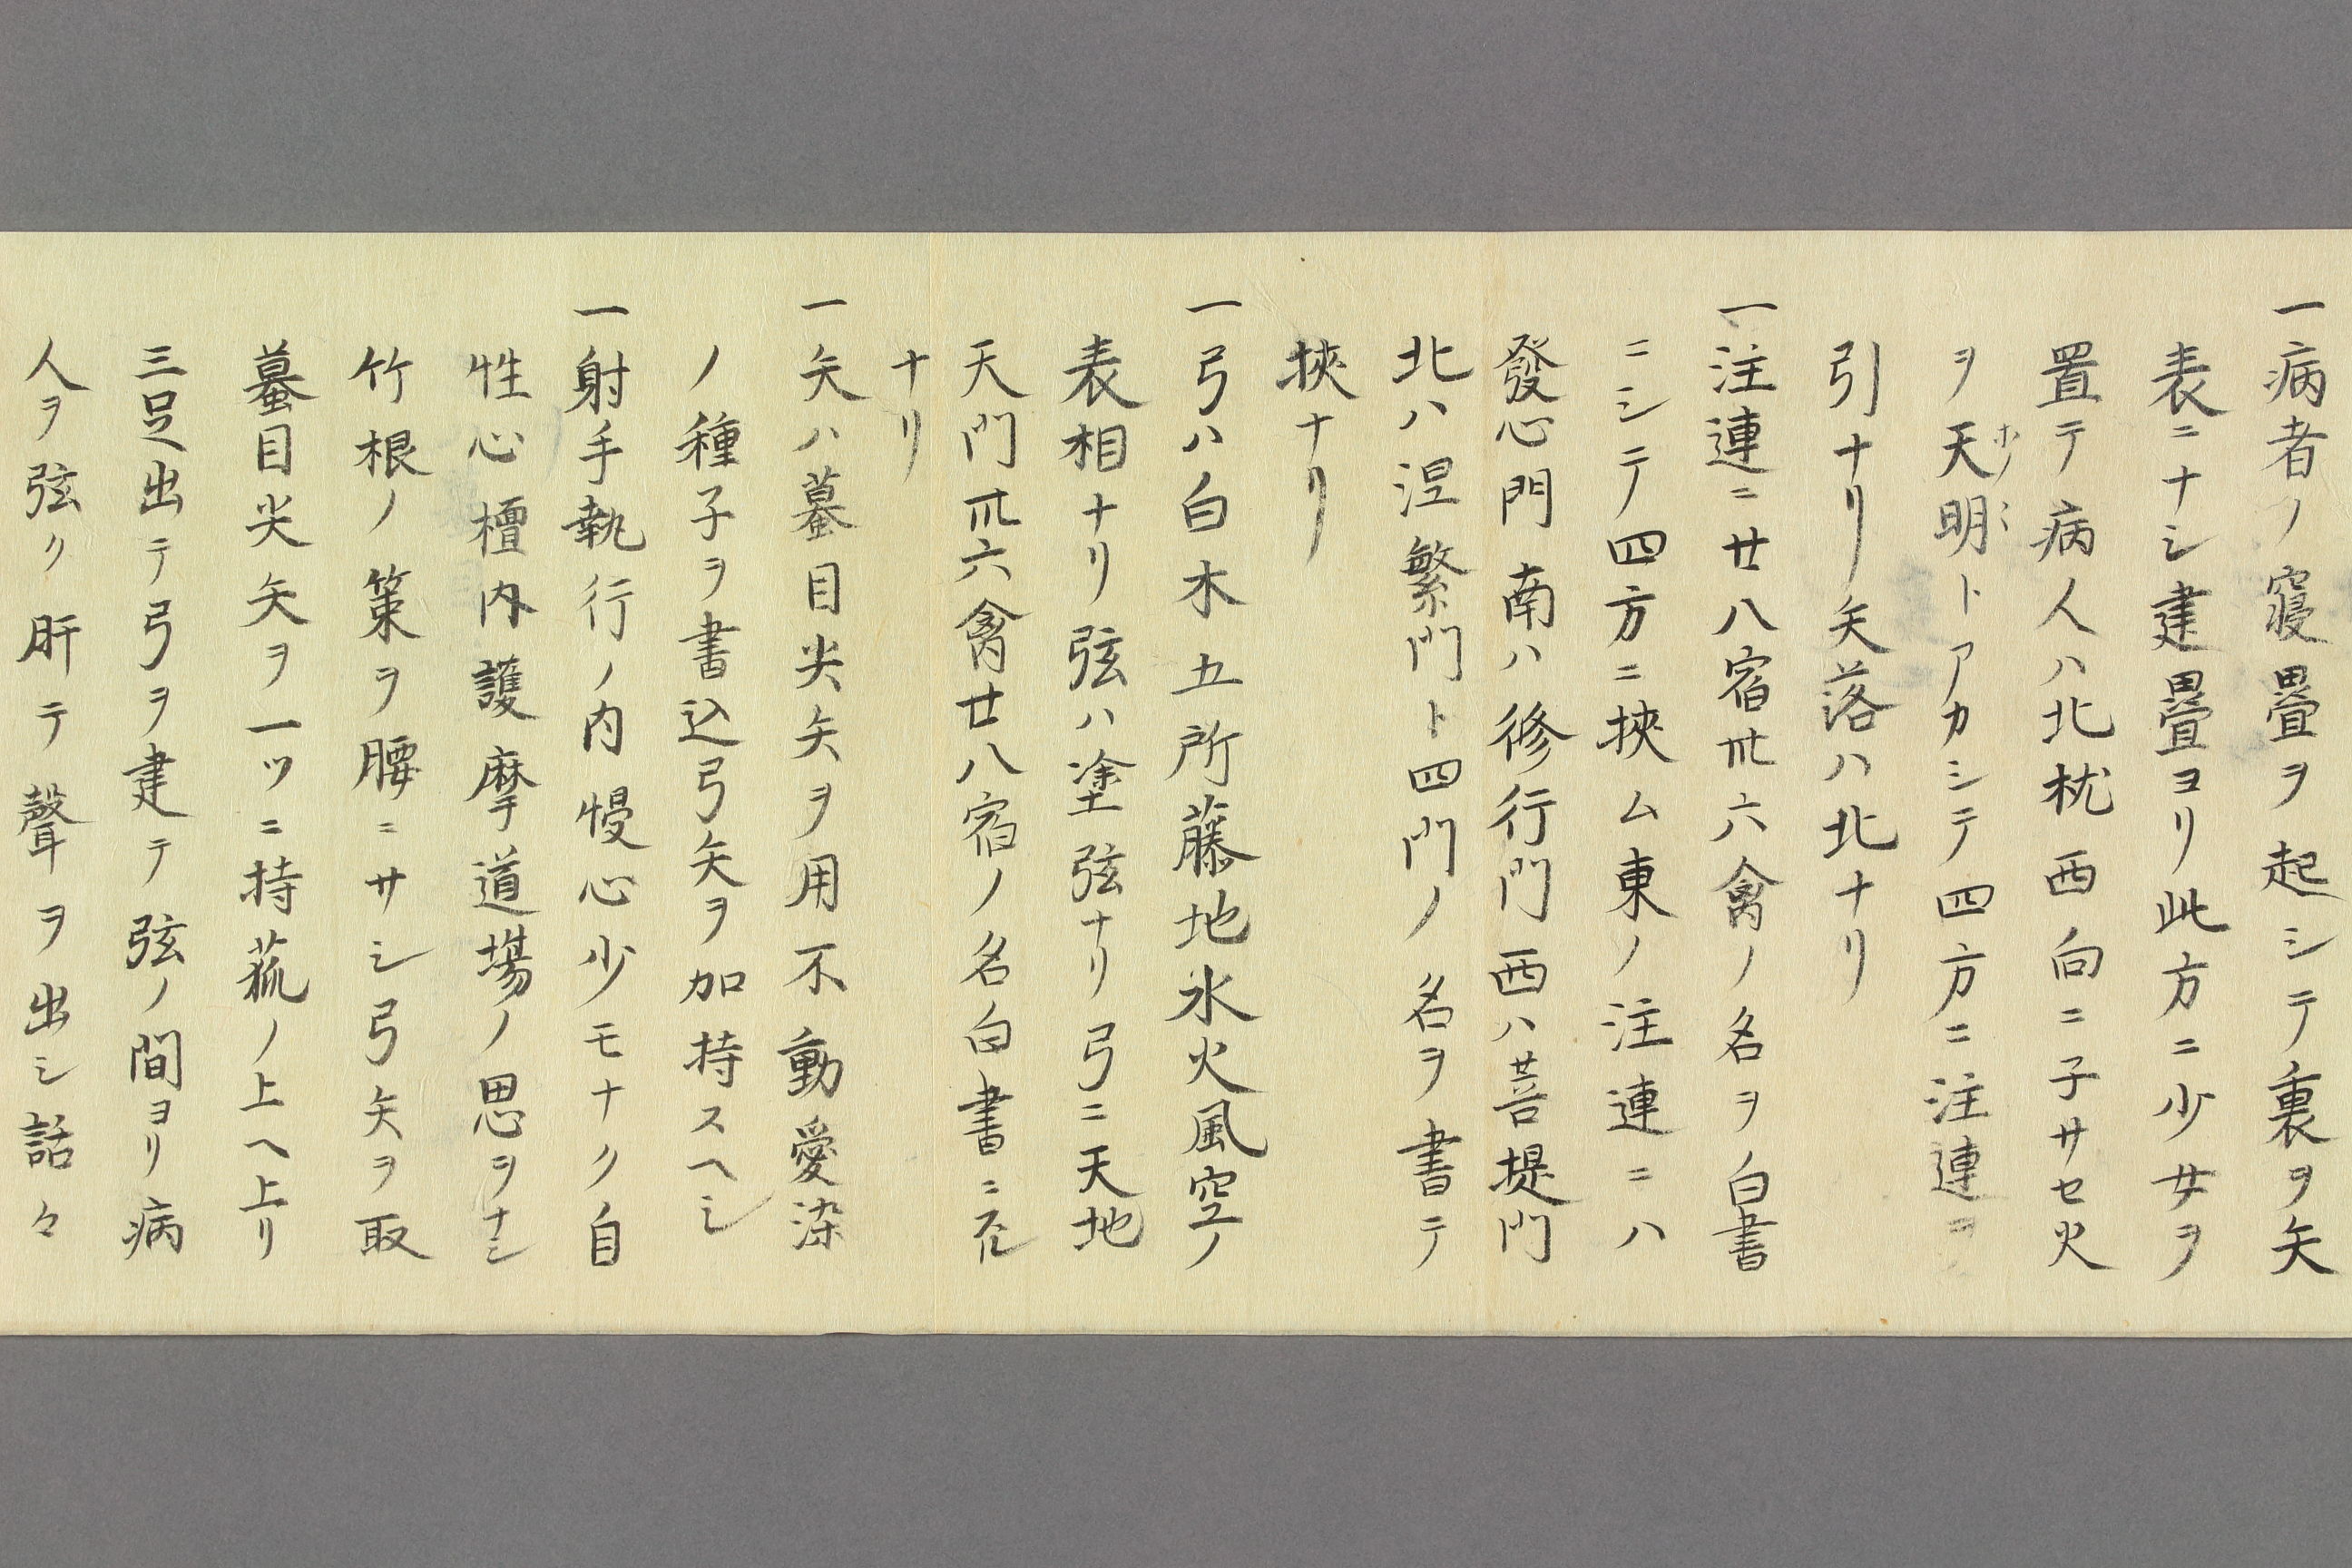 一病者ノ寝畳ヲ起シテ裏ヲ矢
表ニナシ建畳ヨリ此方ニ少女ヲ
置テ病人ハ北枕西向ニ子サセ火
ヲ天明トアカシテ四方ニ注連ヲ
ホノミ
引ナリ矢落ハ北ナリ
一注連ニ廿八宿卅六禽ノ名ヲ白書
ニシテ四方ニ挾ム東ノ注連ニハ
發心門南ハ修行門西ハ菩提門
北ハ涅繁門ト四門ノ名ヲ書テ
挾ナリ
一弓ハ白木五所藤地水火風空ノ
表相ナリ弦ハ塗弦ナリ弓ニ天地
天門卅六禽廿八宿ノ名白書ニ
ナリ
一矢ハ蟇目尖矢ヲ用不動愛染
ノ種子ヲ書込弓矢ヲ加持スヘシ
一射手執行ノ内慢心少モナク自
性心檀内護摩道場ノ思ヲナシ
竹根ノ策ヲ腰ニサシ弓矢ヲ取
蟇目尖矢ヲ一ツニ持菰ノ上ヘ上リ
三足出テ弓ヲ建テ弦ノ間ヨリ病
人ヲ弦ク肝テ聲ヲ出シ話々